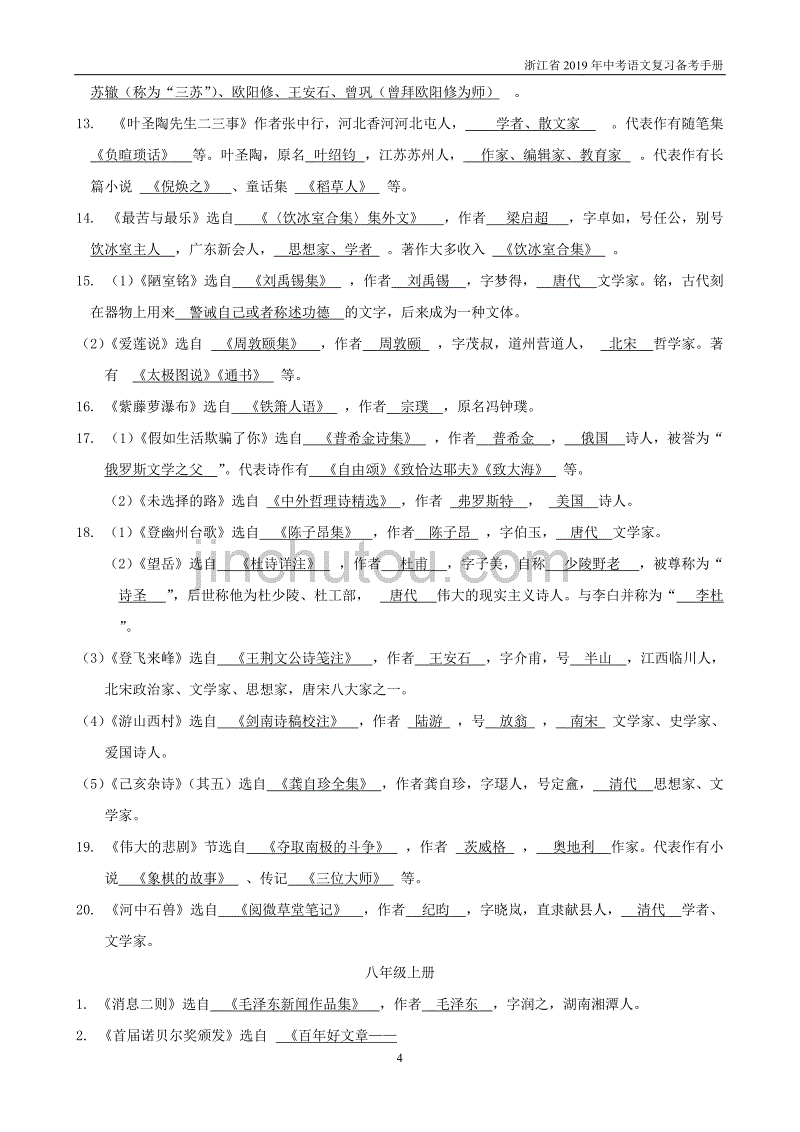 浙江省 2019 年中考语文复习备考手册
苏辙(称为“三苏”)、欧阳修、王安石、曾巩(曾拜欧阳修为师) 。
13. 《叶圣陶先生二三事》作者张中行，河北香河河北屯人， 学者、散文家 。代表作有随笔集
《负暄琐话》 等。叶圣陶，原名 叶绍钧 ，江苏苏州人， 作家、编辑家、教育家 。代表作有长
篇小说 《倪焕之》 、童话集 《稻草人》 等。
14. 《最苦与最乐》选自 《〈饮冰室合集〉集外文》 ，作者 梁启超 ，字卓如，号任公，别号
饮冰室主人 ，广东新会人， 思想家、学者 。著作大多收入 《饮冰室合集》 。
15. (1)《陋室铭》选自 《刘禹锡集》 ，作者 刘禹锡 ，字梦得， 唐代 文学家。铭，古代刻
在器物上用来 警诫自己或者称述功德 的文字，后来成为一种文体。
(2)《爱莲说》选自 《周敦颐集》 ，作者 周敦颐 ，字茂叔，道州营道人， 北宋 哲学家。著
有 《太极图说》《通书》 等。
16. 《紫藤萝瀑布》选自 《铁箫人语》 ，作者 宗璞 ，原名冯钟璞。
17. (1)《假如生活欺骗了你》选自 《普希金诗集》 ，作者 普希金 ， 俄国 诗人，被誉为“
俄罗斯文学之父 ”。代表诗作有 《自由颂》《致恰达耶夫》《致大海》 等。
(2)《未选择的路》选自 《中外哲理诗精选》 ，作者 弗罗斯特 ， 美国 诗人。
18. (1)《登幽州台歌》选自 《陈子昂集》 ，作者 陈子昂 ，字伯玉， 唐代 文学家。
(2)《望岳》选自 《杜诗详注》 ，作者 杜甫 ，字子美，自称 少陵野老 ，被尊称为“
诗圣 ”，后世称他为杜少陵、杜工部， 唐代 伟大的现实主义诗人。与李白并称为“ 李杜
”。
(3)《登飞来峰》选自 《王荆文公诗笺注》 ，作者 王安石 ，字介甫，号 半山 ，江西临川人，
北宋政治家、文学家、思想家，唐宋八大家之一。
(4)《游山西村》选自 《剑南诗稿校注》 ，作者 陆游 ，号 放翁 ， 南宋 文学家、史学家、
爱国诗人。
(5)《己亥杂诗》(其五)选自 《龚自珍全集》 ，作者龚自珍，字璱人，号定盦， 清代 思想家、文
学家。
19. 《伟大的悲剧》节选自 《夺取南极的斗争》 ，作者 茨威格 ， 奥地利 作家。代表作有小
说 《象棋的故事》 、传记 《三位大师》 等。
20. 《河中石兽》选自 《阅微草堂笔记》 ，作者 纪昀 ，字晓岚，直隶献县人， 清代 学者、
文学家。
八年级上册
1. 《消息二则》选自 《毛泽东新闻作品集》 ，作者 毛泽东 ，字润之，湖南湘潭人。
2. 《首届诺贝尔奖颁发》选自 《百年好文章——
4
jinchutou.com